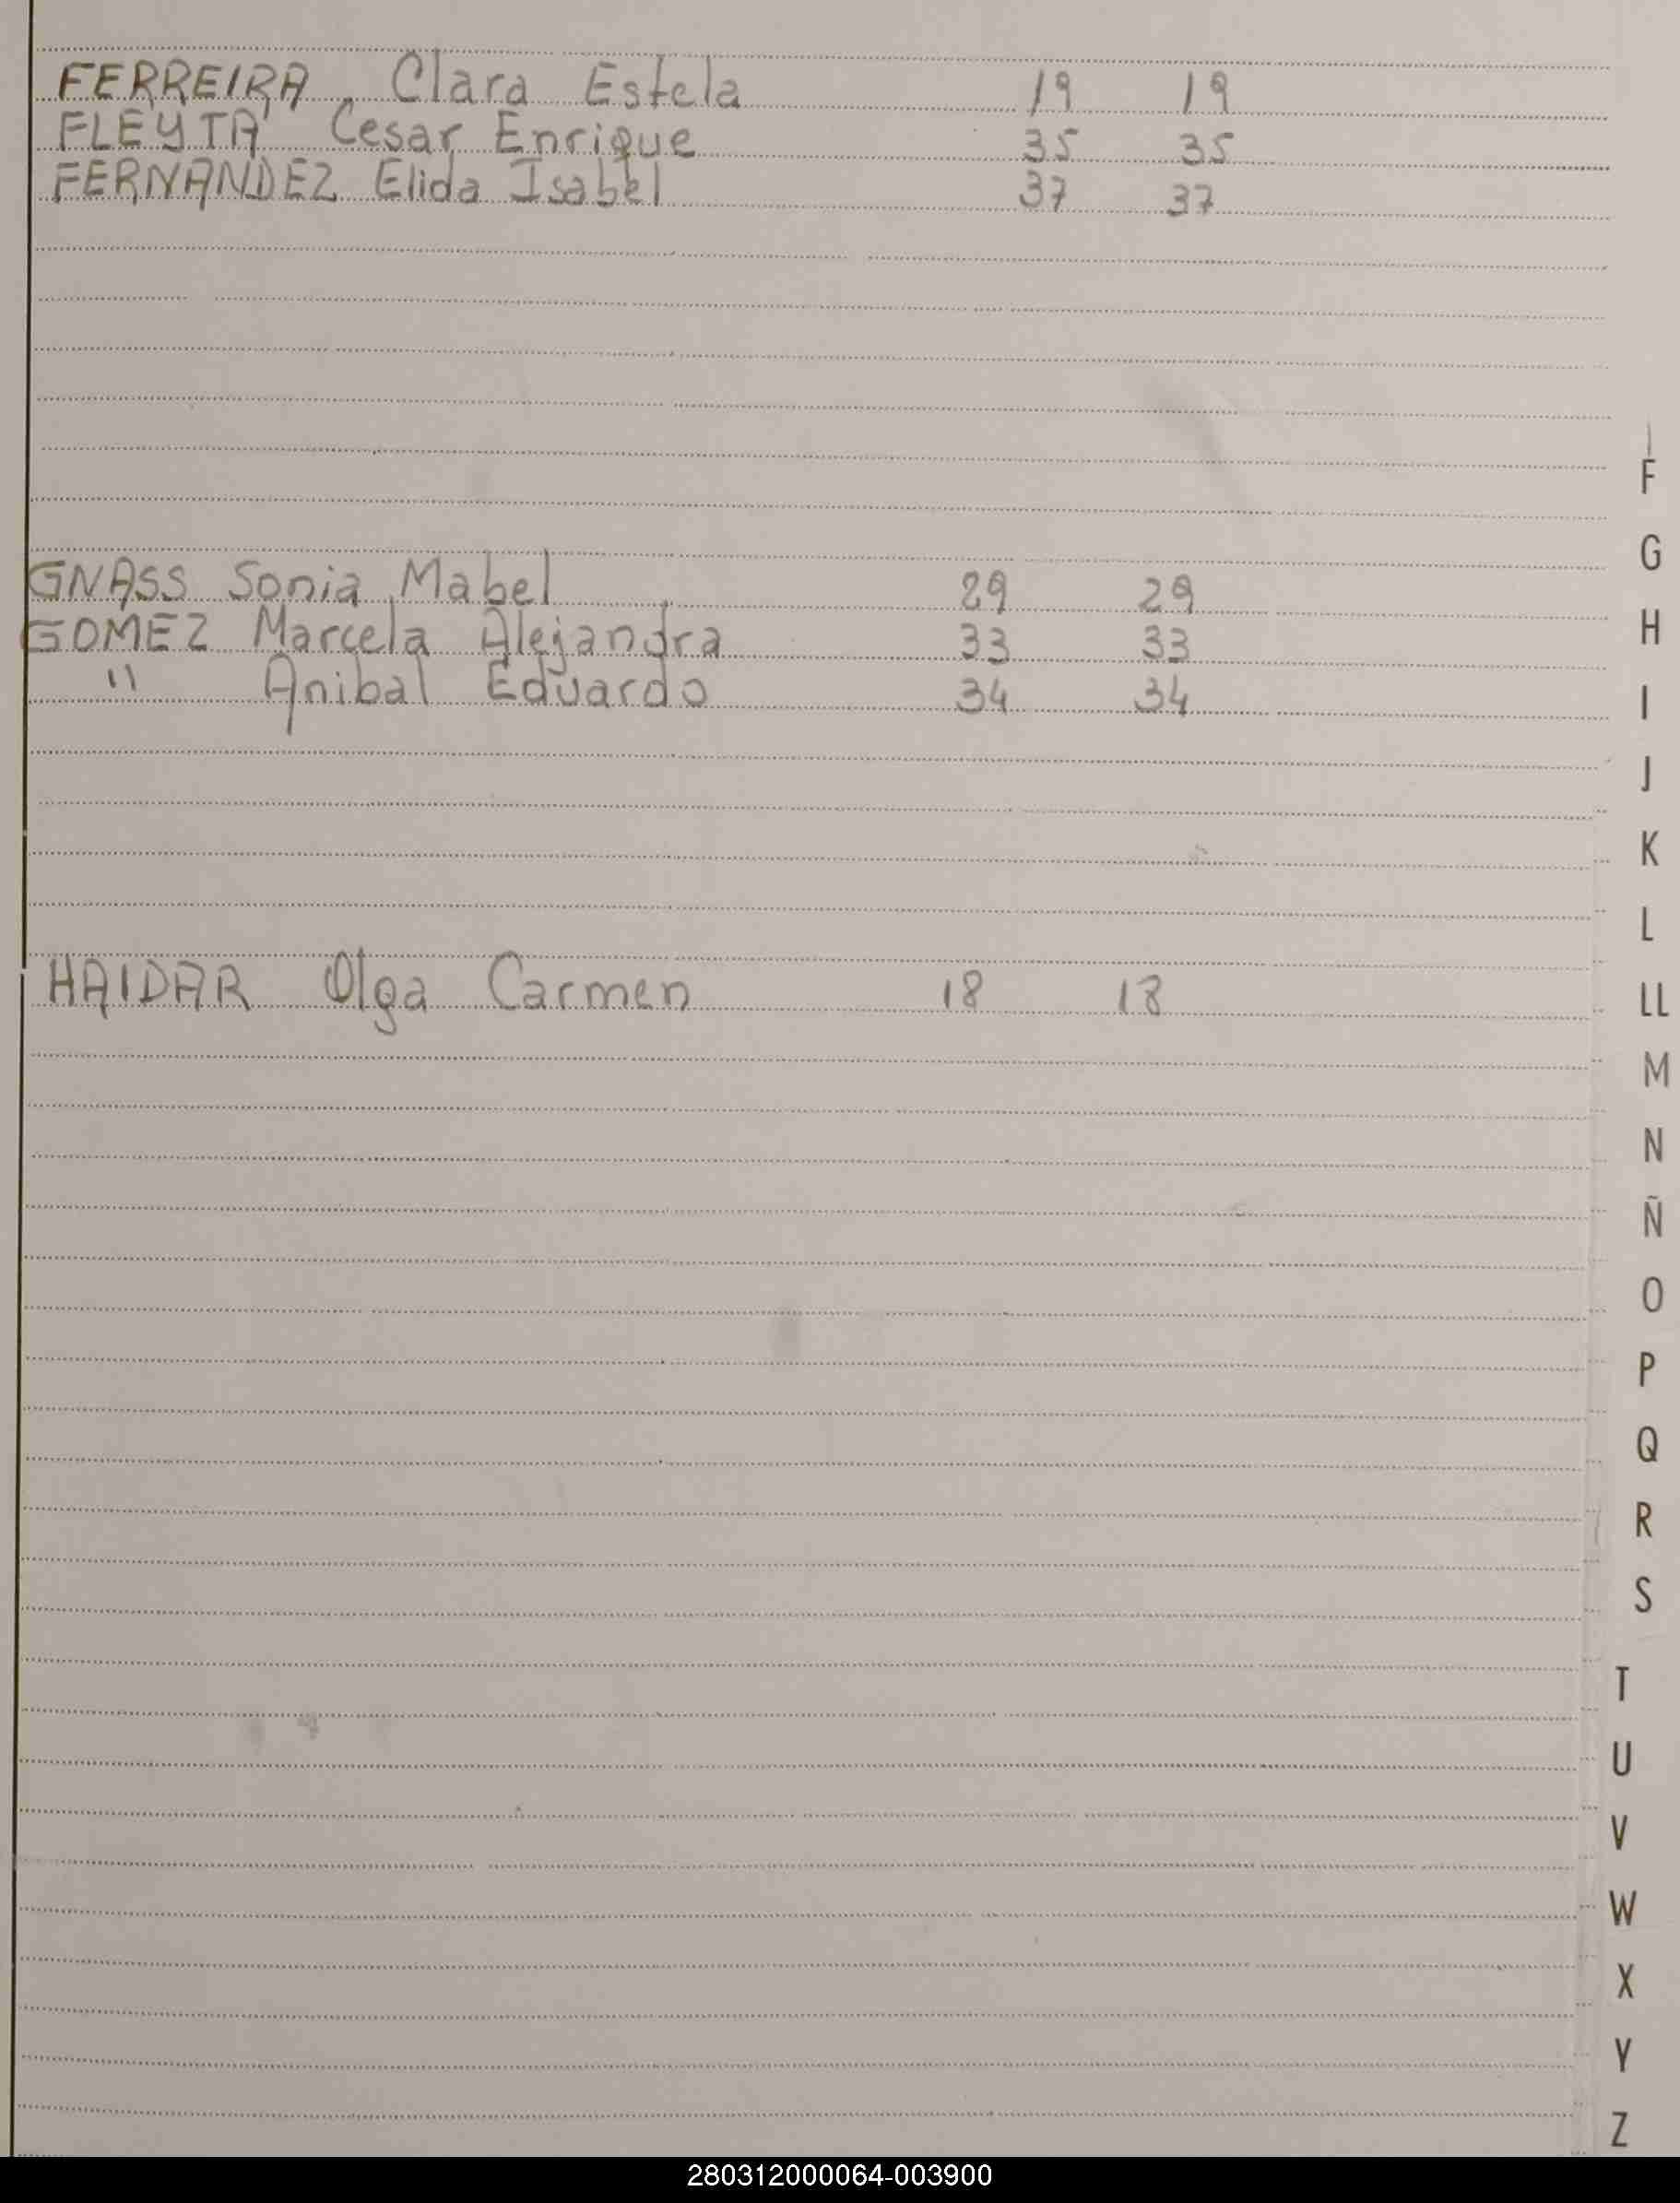 FERREIRA Clara Estela 19 19
FLEYTA Cesar Enrique 35 35
FERNANDEZ Elida Isabel 37 37
F
G
GNASS Sonia Mabel 29 29
H
GOMEZ Marcela Alejandra 33 33
" Anibal Eduardo 34 34
I
J
K
L
HAIDAR Olga Carmen 18 18
LL
M
N
Ñ
O
P
Q
R
S
T
U
V
W
X
Y
Z
280312000064-003900